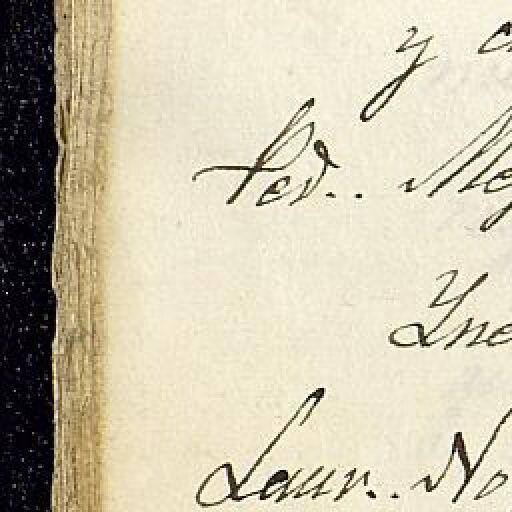 y
Ped.. Me
Yne
Laur.. No